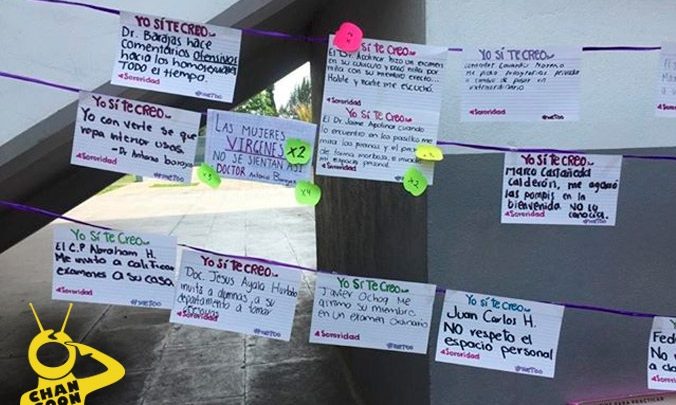 Yo SÍ Te Creo
Dr. Barajas hace
comentarios Ofensivos
hacia los homosexuales
TODO el tiempo.
#Sororidad
#MeToo
Yo SÍ Te Creo
El Dr. Apolinar hizo un examen
en su cubículo y
Hablé y nadie me escuchó.
#Sororidad
Yo SÍ Te Creo
El Dr. Jaime Apolinar cuando
lo encuentro en los pasillos me
mira las piernas y el
de forma morbosa, e
mi espacio personal.
#Sororidad
x2
Yo SÍ Te Creo
Eduardo Moreno
me pidió fotografías privadas
a cambio de pasar en
extraordinario
#Sororidad
Yo SÍ Te Creo
Yo con verte se que
ropa interior usas.
-Dr Antonio barajas
#Sororidad
#MeToo
LAS MUJERES
VÍRGENES
NO SE SIENTAN ASÍ
DOCTOR Antonio Barajas
x2
x4
Yo SÍ Te Creo
Marco Castañeda
Calderón, me agarró
las pompis en la
bienvenida NO lo
conocía.
#Sororidad
#MeToo
Yo SÍ Te Creo
El C.P Abraham H.
Me invito a calificar
examenes a su casa
#Sororidad
#MeToo
Yo SÍ Te Creo
Doc. Jesús Ayala Hurtado
invitó a alumnas a su
departamento a tomar
#Sororidad
#MeToo
Yo SÍ Te Creo
Javier Ochoa Me
arrimo su miembro
en un examen Ordinario
#Sororidad
#MeToo
Yo SÍ Te Creo
Juan Carlos H.
NO respeto el
espacio personal
#Sororidad
#MeToo
Yo
Fede
No
a cla
#Sororidad
CHAN
GOON